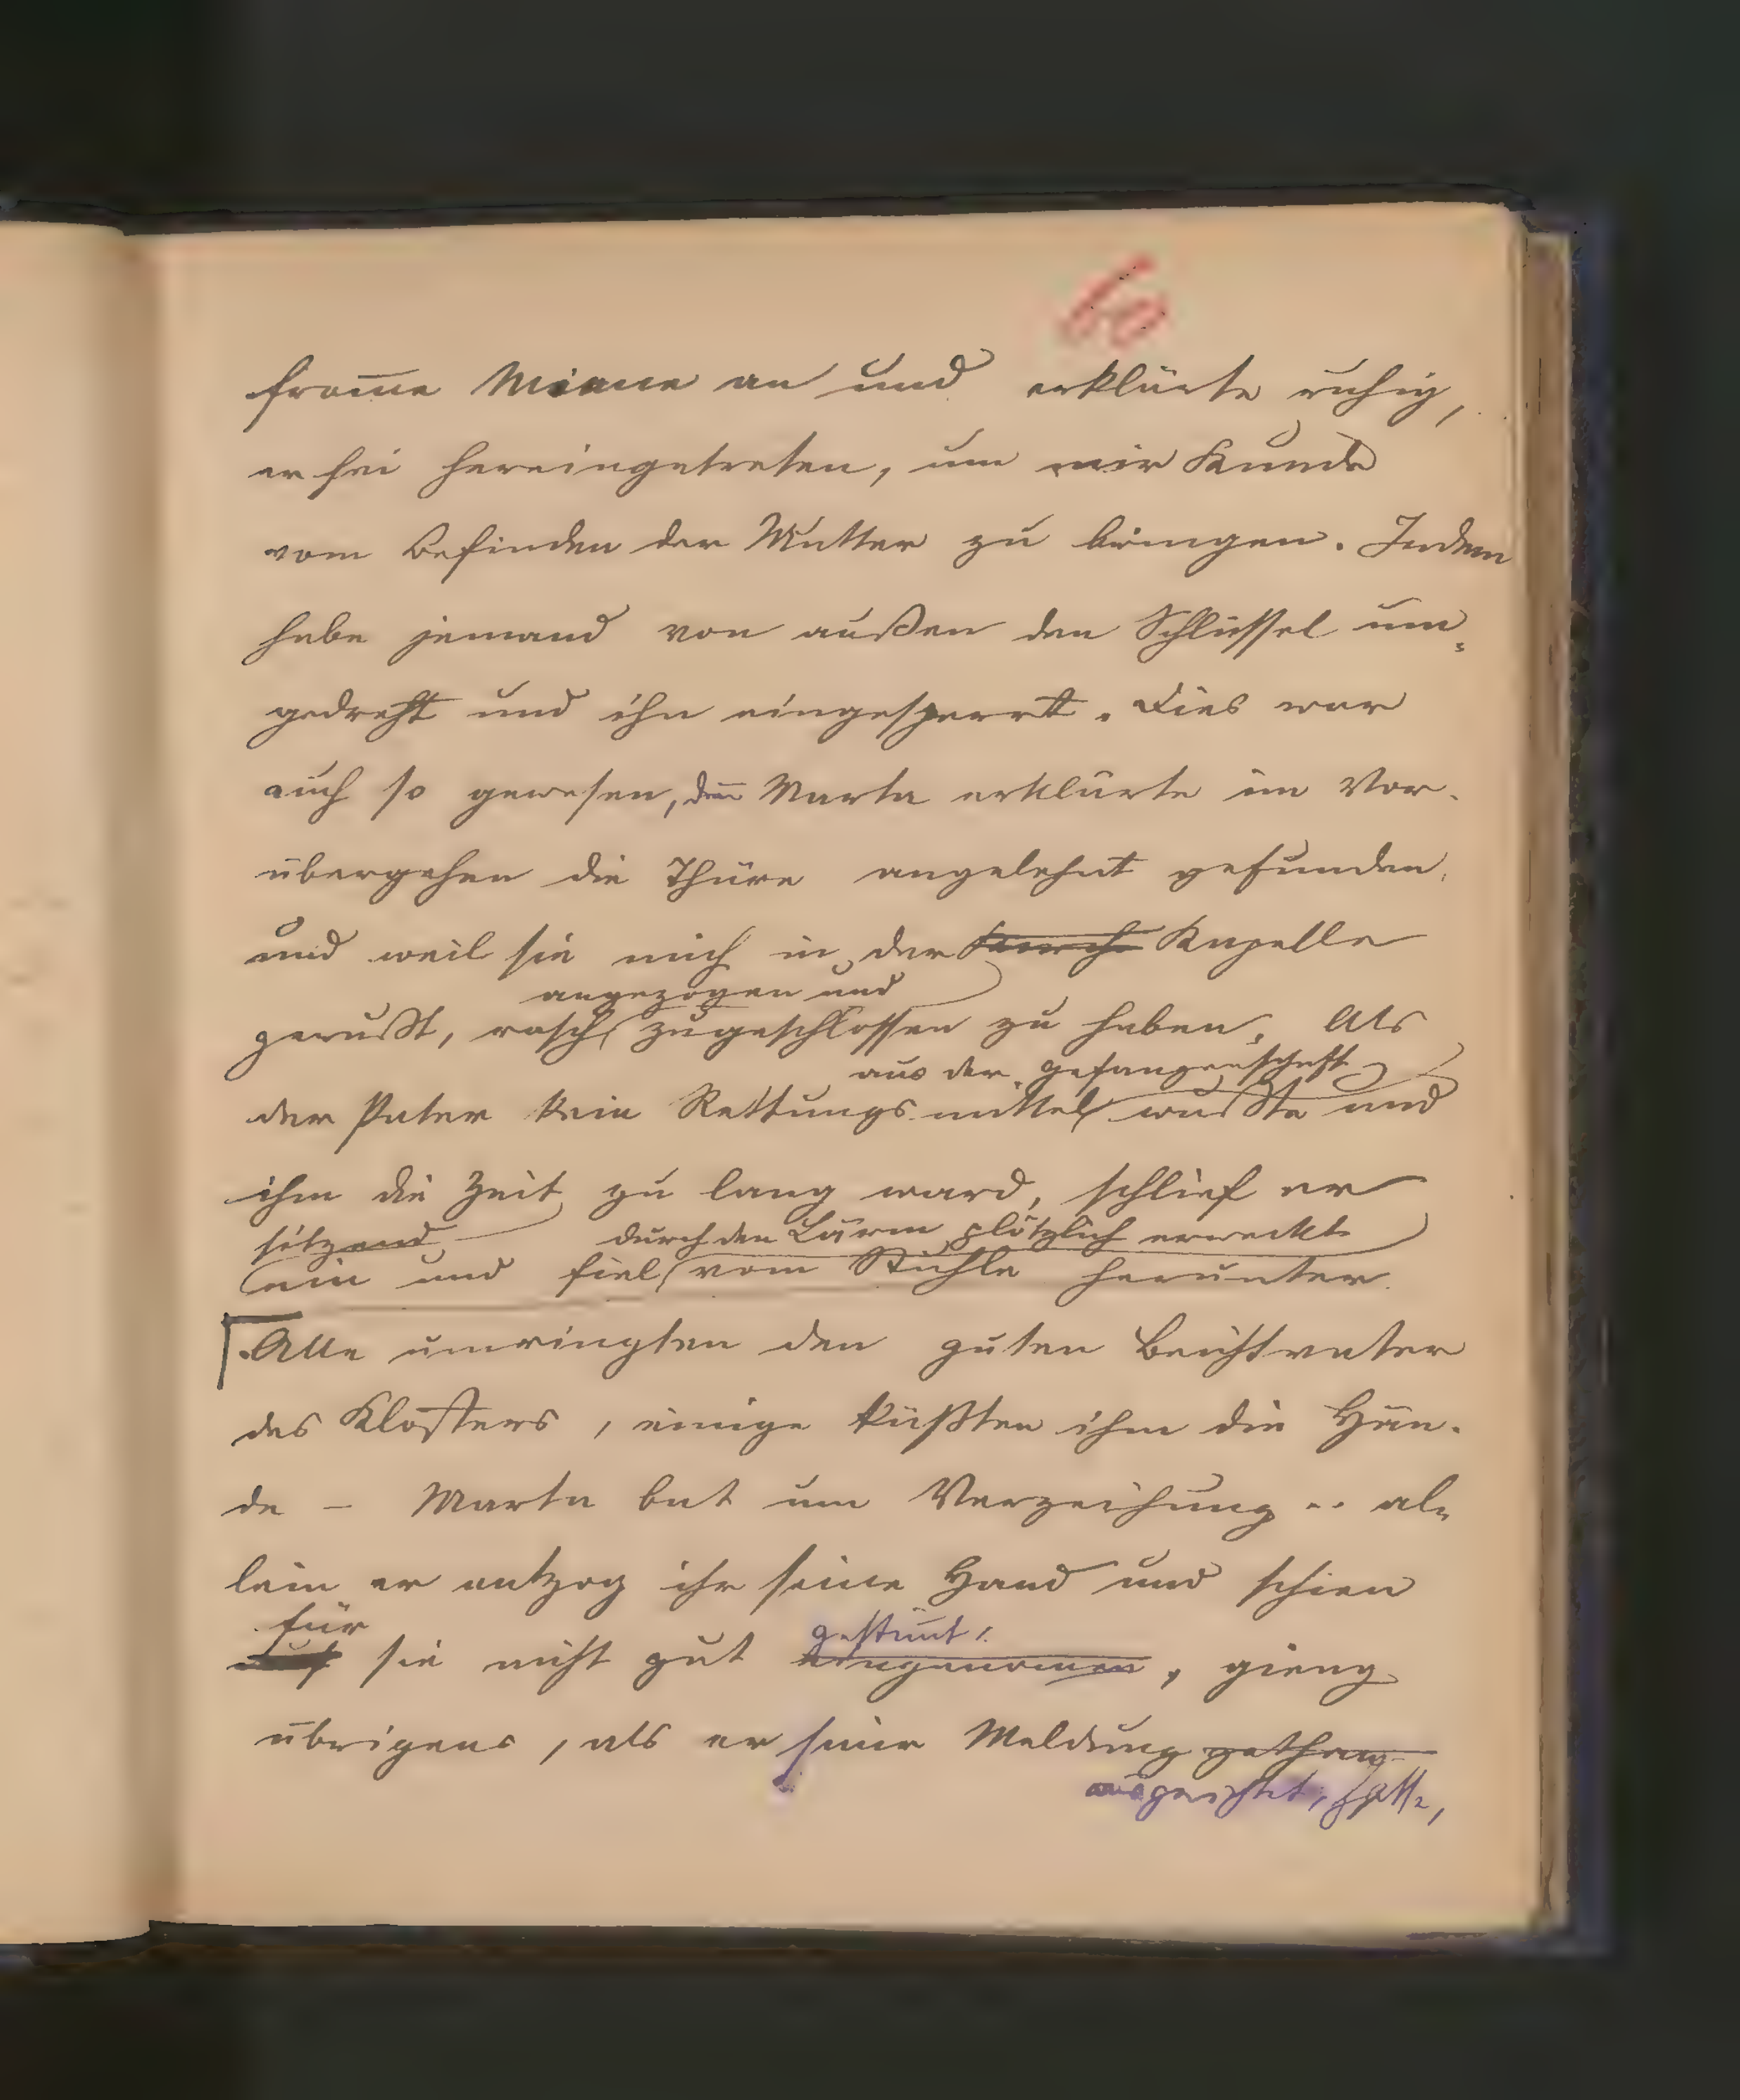 60
from̅e Miene an und erklärte ruhig,
er sei hereingetreten, um mir Kunde
vom Befinden der Mutter zu bringen. Indem
habe jemand von außen den Schlüssel um-
gedreht und ihn eingesperrt. Dies war
auch so gewesen, den̅ Marta erklärte im Vor-
übergehen die Thüre angelehnt gefunden
und weil sie mich in der Kapelle
angezogen und
gewußt, rasch zugeschlossen zu haben. Als
aus der Gefangenschaft
der Pater kein Rettungsmittel wußte und
ihm die Zeit zu lang ward, schlief er
sitzend durch den Lärm plötzlich erweckt
ein und fiel vom Stuhle herunter.
Alle umringten den guten Beichtvater
des Klosters, einige küßten ihm die Hän-
de – Marta bat um Verzeihung .. al-
lein er entzog ihr seine Hand und schien
für gestim̅t
auf sie nicht gut eingenom̅en, gieng
übrigens, als er seine Meldung gethan
ausgerichtet, hatte,